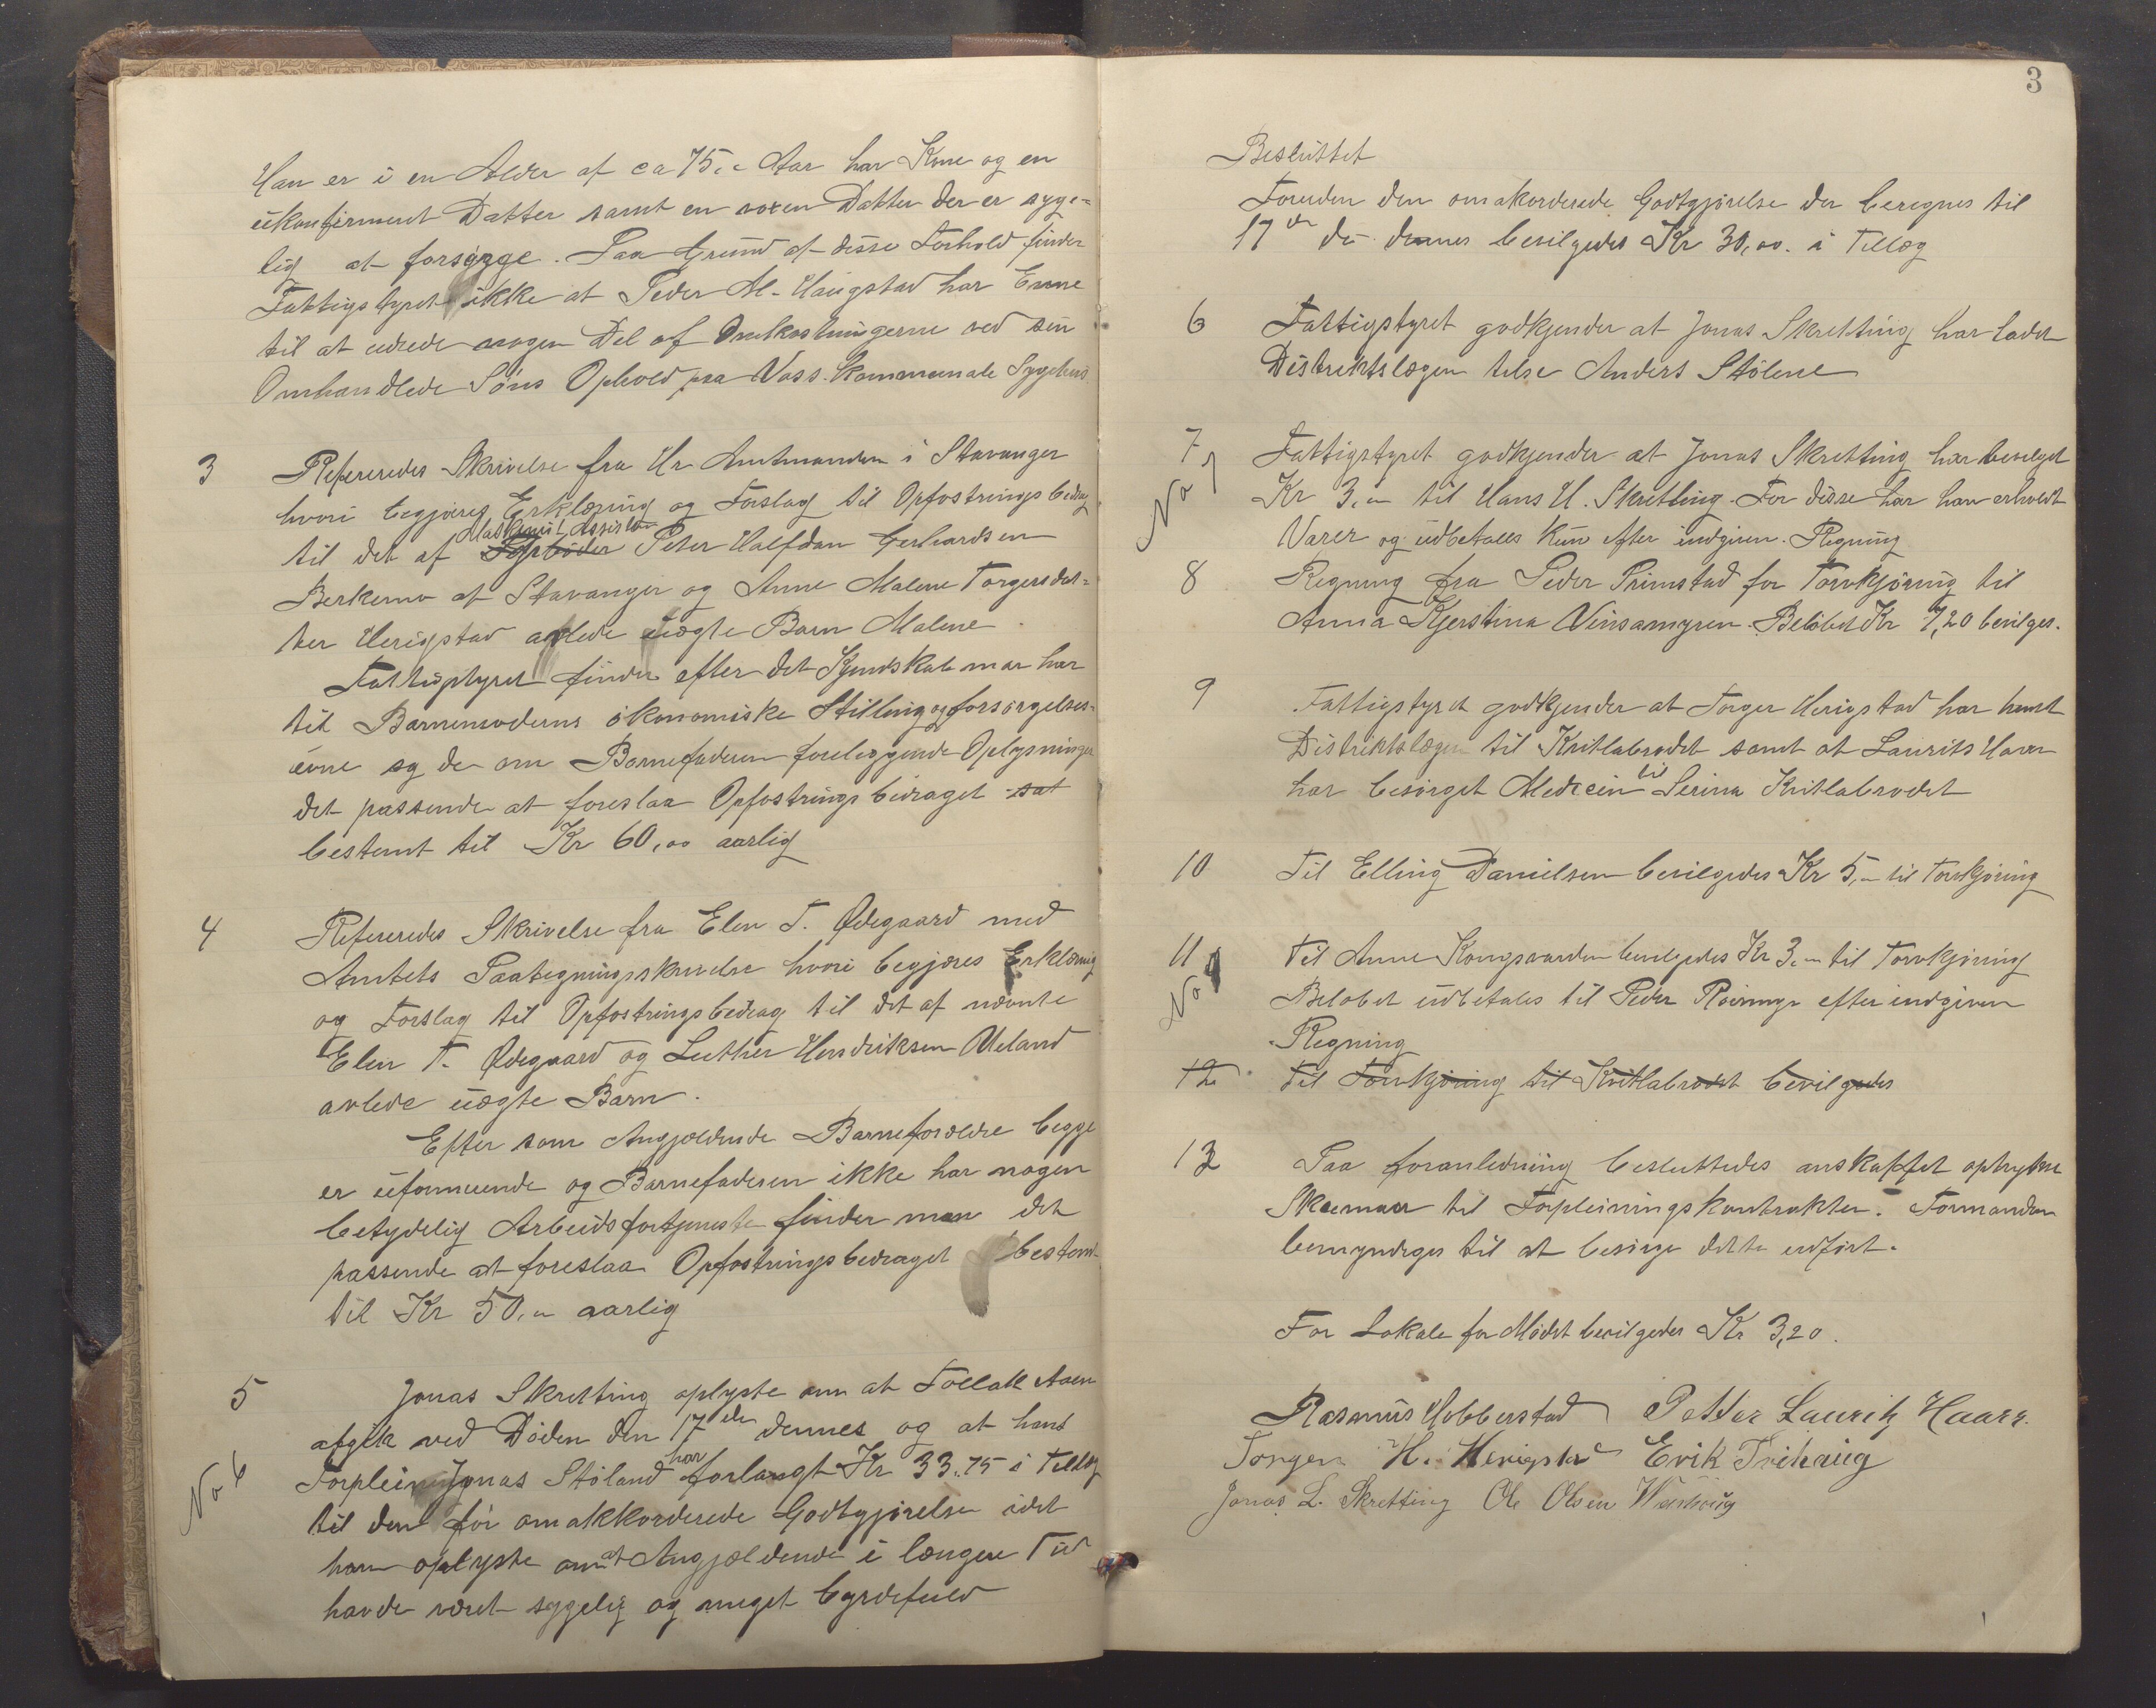 Han er i en Alder af ca 75,- Aar har Kone og en
ukonfirmeret Datter samt en voxen Datter der er syge-
lig at forsørge. Paa Grund af disse Forhold finder
Fattigstyret ikke at Peder M. Haugstad har Evne
til at udrede nogen Del af Omkostningerne ved sin
Omhandlede Søns Ophold paa Voss kommunale Sygehus
3 Refereredes Skrivelse fra Hr Amtmanden i Stavanger
hvori begjæres Erklæring og Forslag til Opfostringsbidrag
Maskinist Assistent
til det af Peter Halfdan Gerhardsen
af Stavanger og Anne Malene Torgersdat-
ter Herigstad avlede uægte Barn Malene
Fattigstyret finder efter det Kjendskab man har
til Barnemoderns økonomiske Stilling og forsørgelses-
evne og de om Barnefaderen foreliggende Oplysninger
det passende at foreslaa Opfostringsbidraget sat
bestemt til Kr 60,00 aarlig
4 Refereredes Skrivelse fra Elen T. Ødegaard med
Amtets Paategningsskrivelse hvori begjæres Erklæring
og Forslag til Opfostringsbidrag til det af nævnte
Elen T. Ødegaard og Luther Hendriksen Ueland
avlede uægte Barn.
Efter som Angjældende Barneforældre begge
er uformuende og Barnefaderen ikke har nogen
betydelig Arbeidsfortjeneste finder man det
passende at foreslaa Opfostringsbidraget bestemt
til Kr 50,- aarlig
5 Jonas Skretting oplyste om at Tollak Aaen
afgik ved Døden den 17de dennes og at hans
har
No 6 Jonas Støland forlangt Kr 33.75 i Tillæg
til den før omakkorderede Godtgjørelse idet
han oplyste om at Angjældende i længere Tid
havde været sygelig og meget byrdefuld
3
Besluttet
Foruden den omakorderede Godtgjørelse der beregnes til
17de ds. dennes bevilgedes Kr 30,00. i Tillæg
6 Fattigstyret godkjender at Jonas Skretting har ladet
Distriktslægen tilse Anders Stølene
7 Fattigstyret godkjender at Jonas Skretting har bevilget
No 7 Kr 3,- til Hans H. Skretting. For disse har han erholdt
Varer og udbetales kun efter indgiven Regning
8 Regning fra Peder Primstad for Torvkjøring til
Anna Kjerstina Vinsamyren. Beløbet Kr 7,20 bevilges.
9 Fattigstyret godkjender at Torger Herigstad har hentet
Distriktslægen til Kvitlabrodet samt at Laurits Haar
til
har besørget Medicin Serina Kvitlabrodet
10 Til Elling Danielsen bevilgedes Kr 5,- til Torvkjøring
11 Til Anne Kongsvarden bevilgedes Kr 3,- til Torvkjøring
No 9 Beløbet udbetales til Peder efter indgiven
Regning
12 Til Torvkjøring til Kvitlabrodet bevilgedes
13 Paa foranledning besluttedes anskaffet optrykne
Skemaer til Forpleiningskontrakter. Formanden
bemyndiges til at besørge dette udført.
For Lokale for Mødet bevilgedes Kr 3,20.
Rasmus Hobberstad Petter Lauritz Haarr.
Torger H. Herigstad Erik Tvihaug
Jonas L. Skretting Ole Olsen